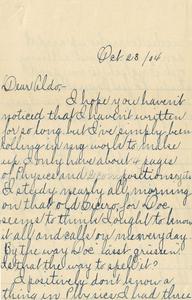 Oct 23/04
Dear Aldo,-
I hope you haven't
noticed that I haven't written
for so long but I've simply been
toiling in my world to make
up. I only have about 4 pages
of Physics and 2 propositions yet
I study nearly all morning
on that old Cicero, for Doc,
seems to think I ought to know
it all and calls on me everyday
By the way Doc "last grisen".
Is that the way to spell it?
I positively don't know a
thing in Physics. I had the